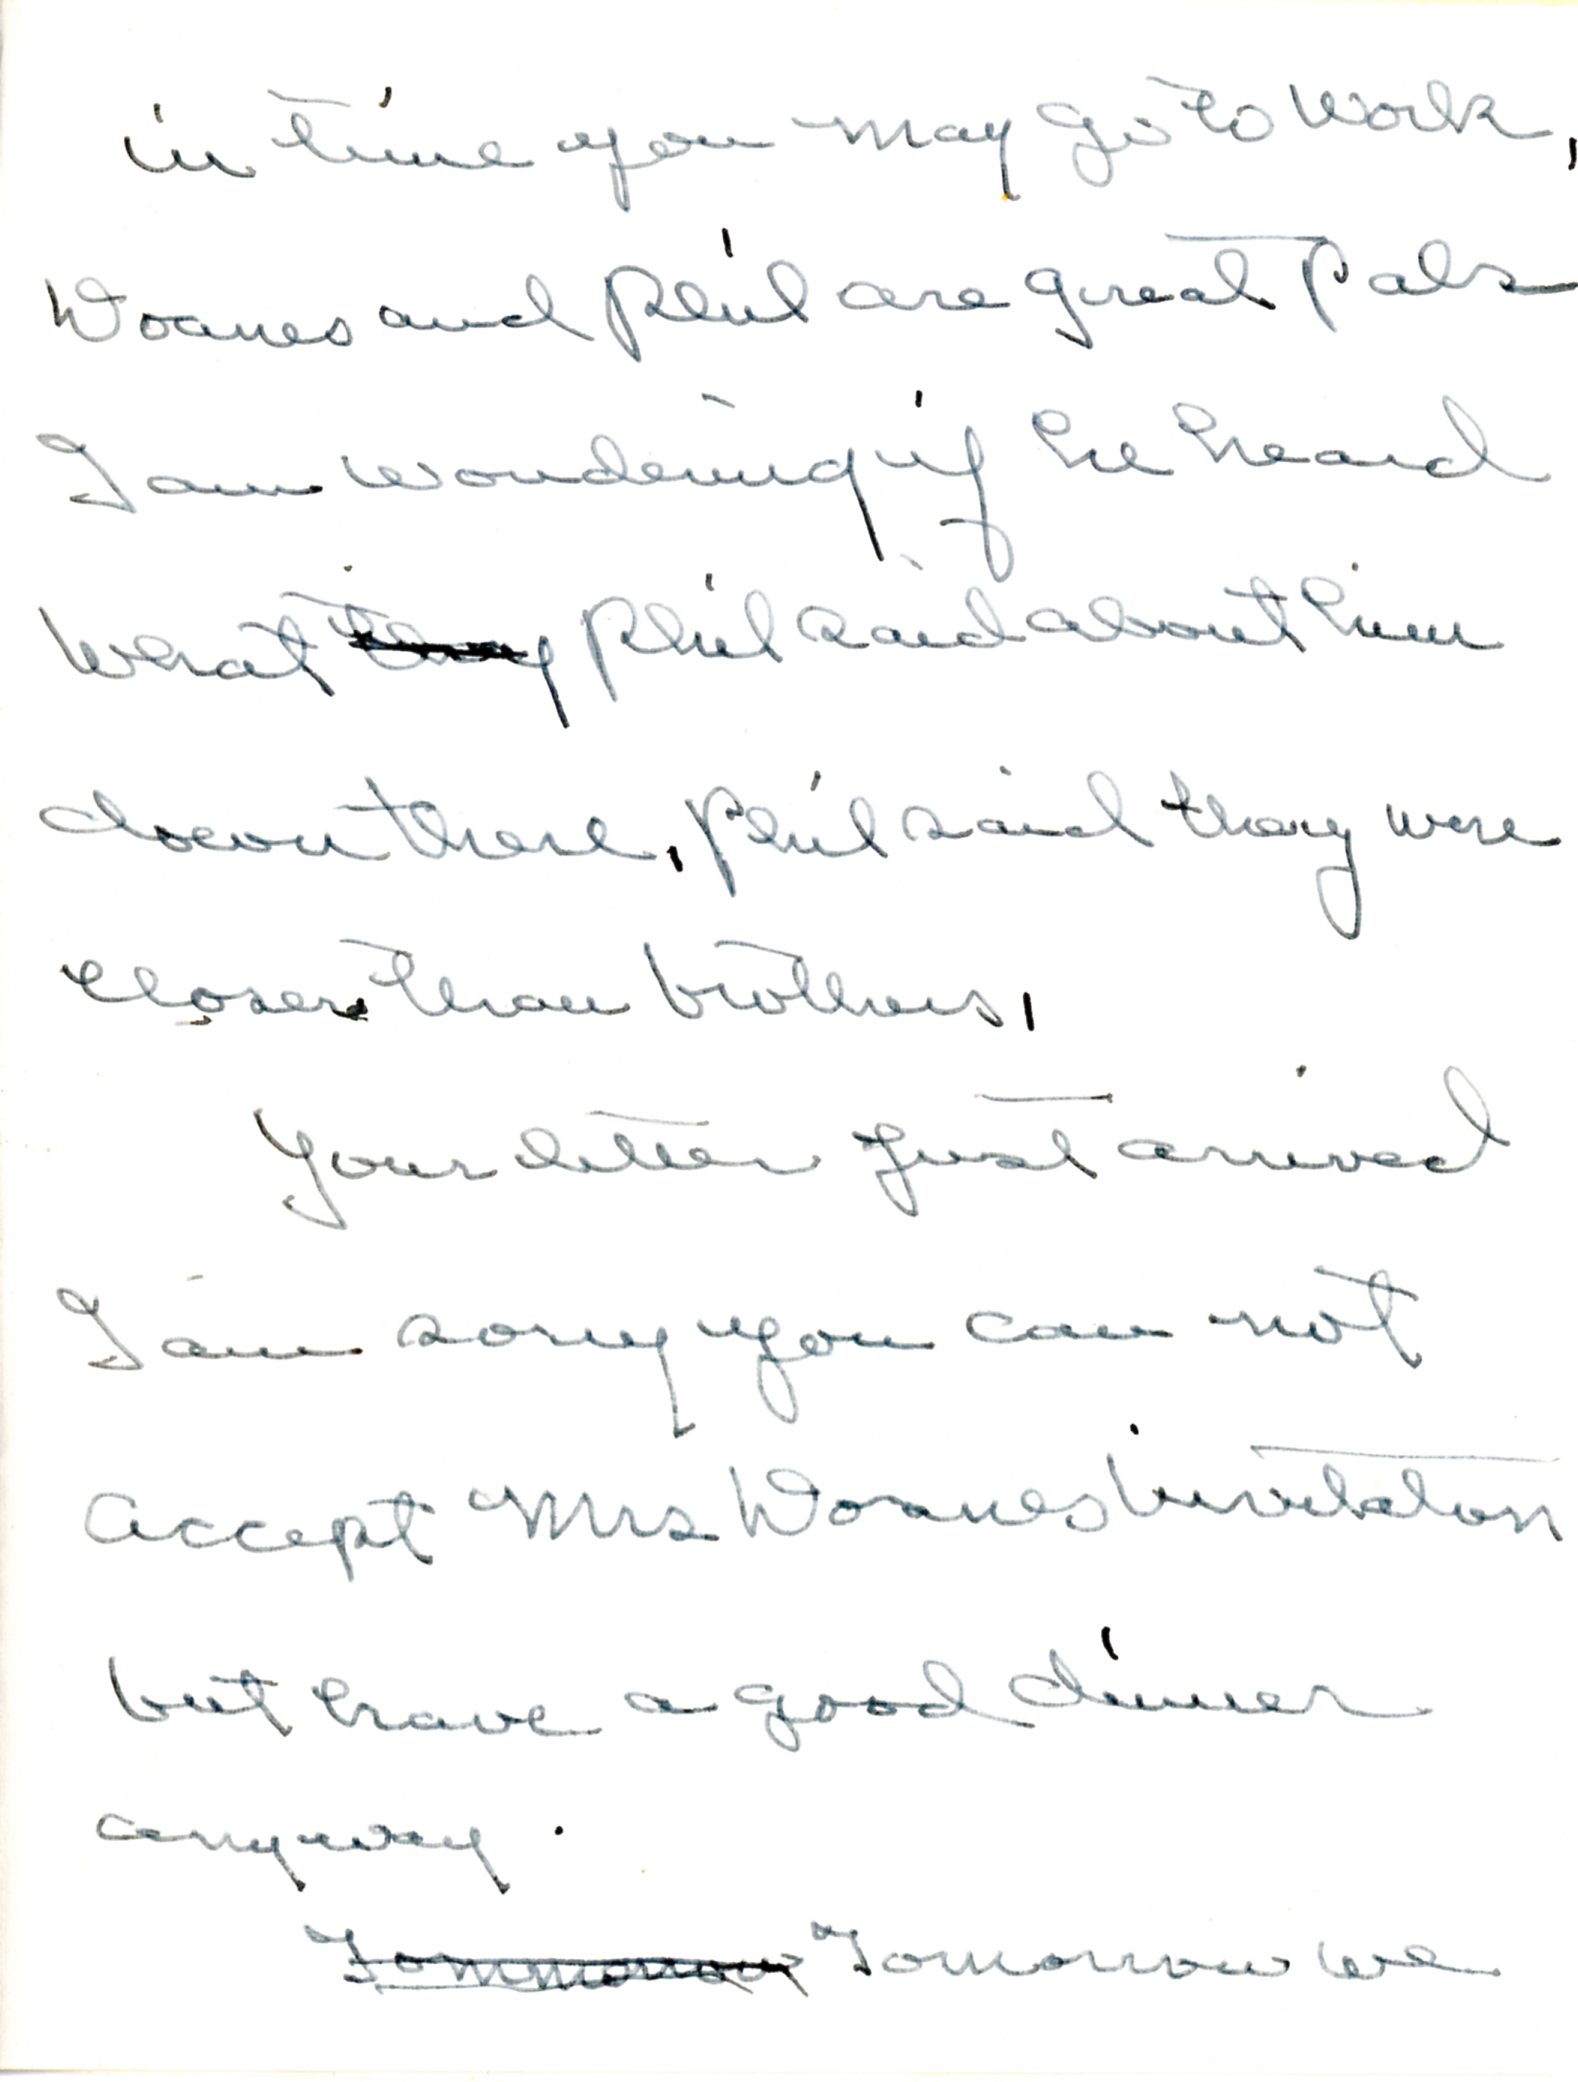 in time you may go to work,
Doanes and Phil are great Pals
I am wondering if he heard
what they Phil said about him
down there, Phil said they were
closer than brothers,
Your letter just arrived
I am sorry you can not
accept Mrs Doanes invitation
but have a good dinner
anyway.
Tommorrow Tomorrow we